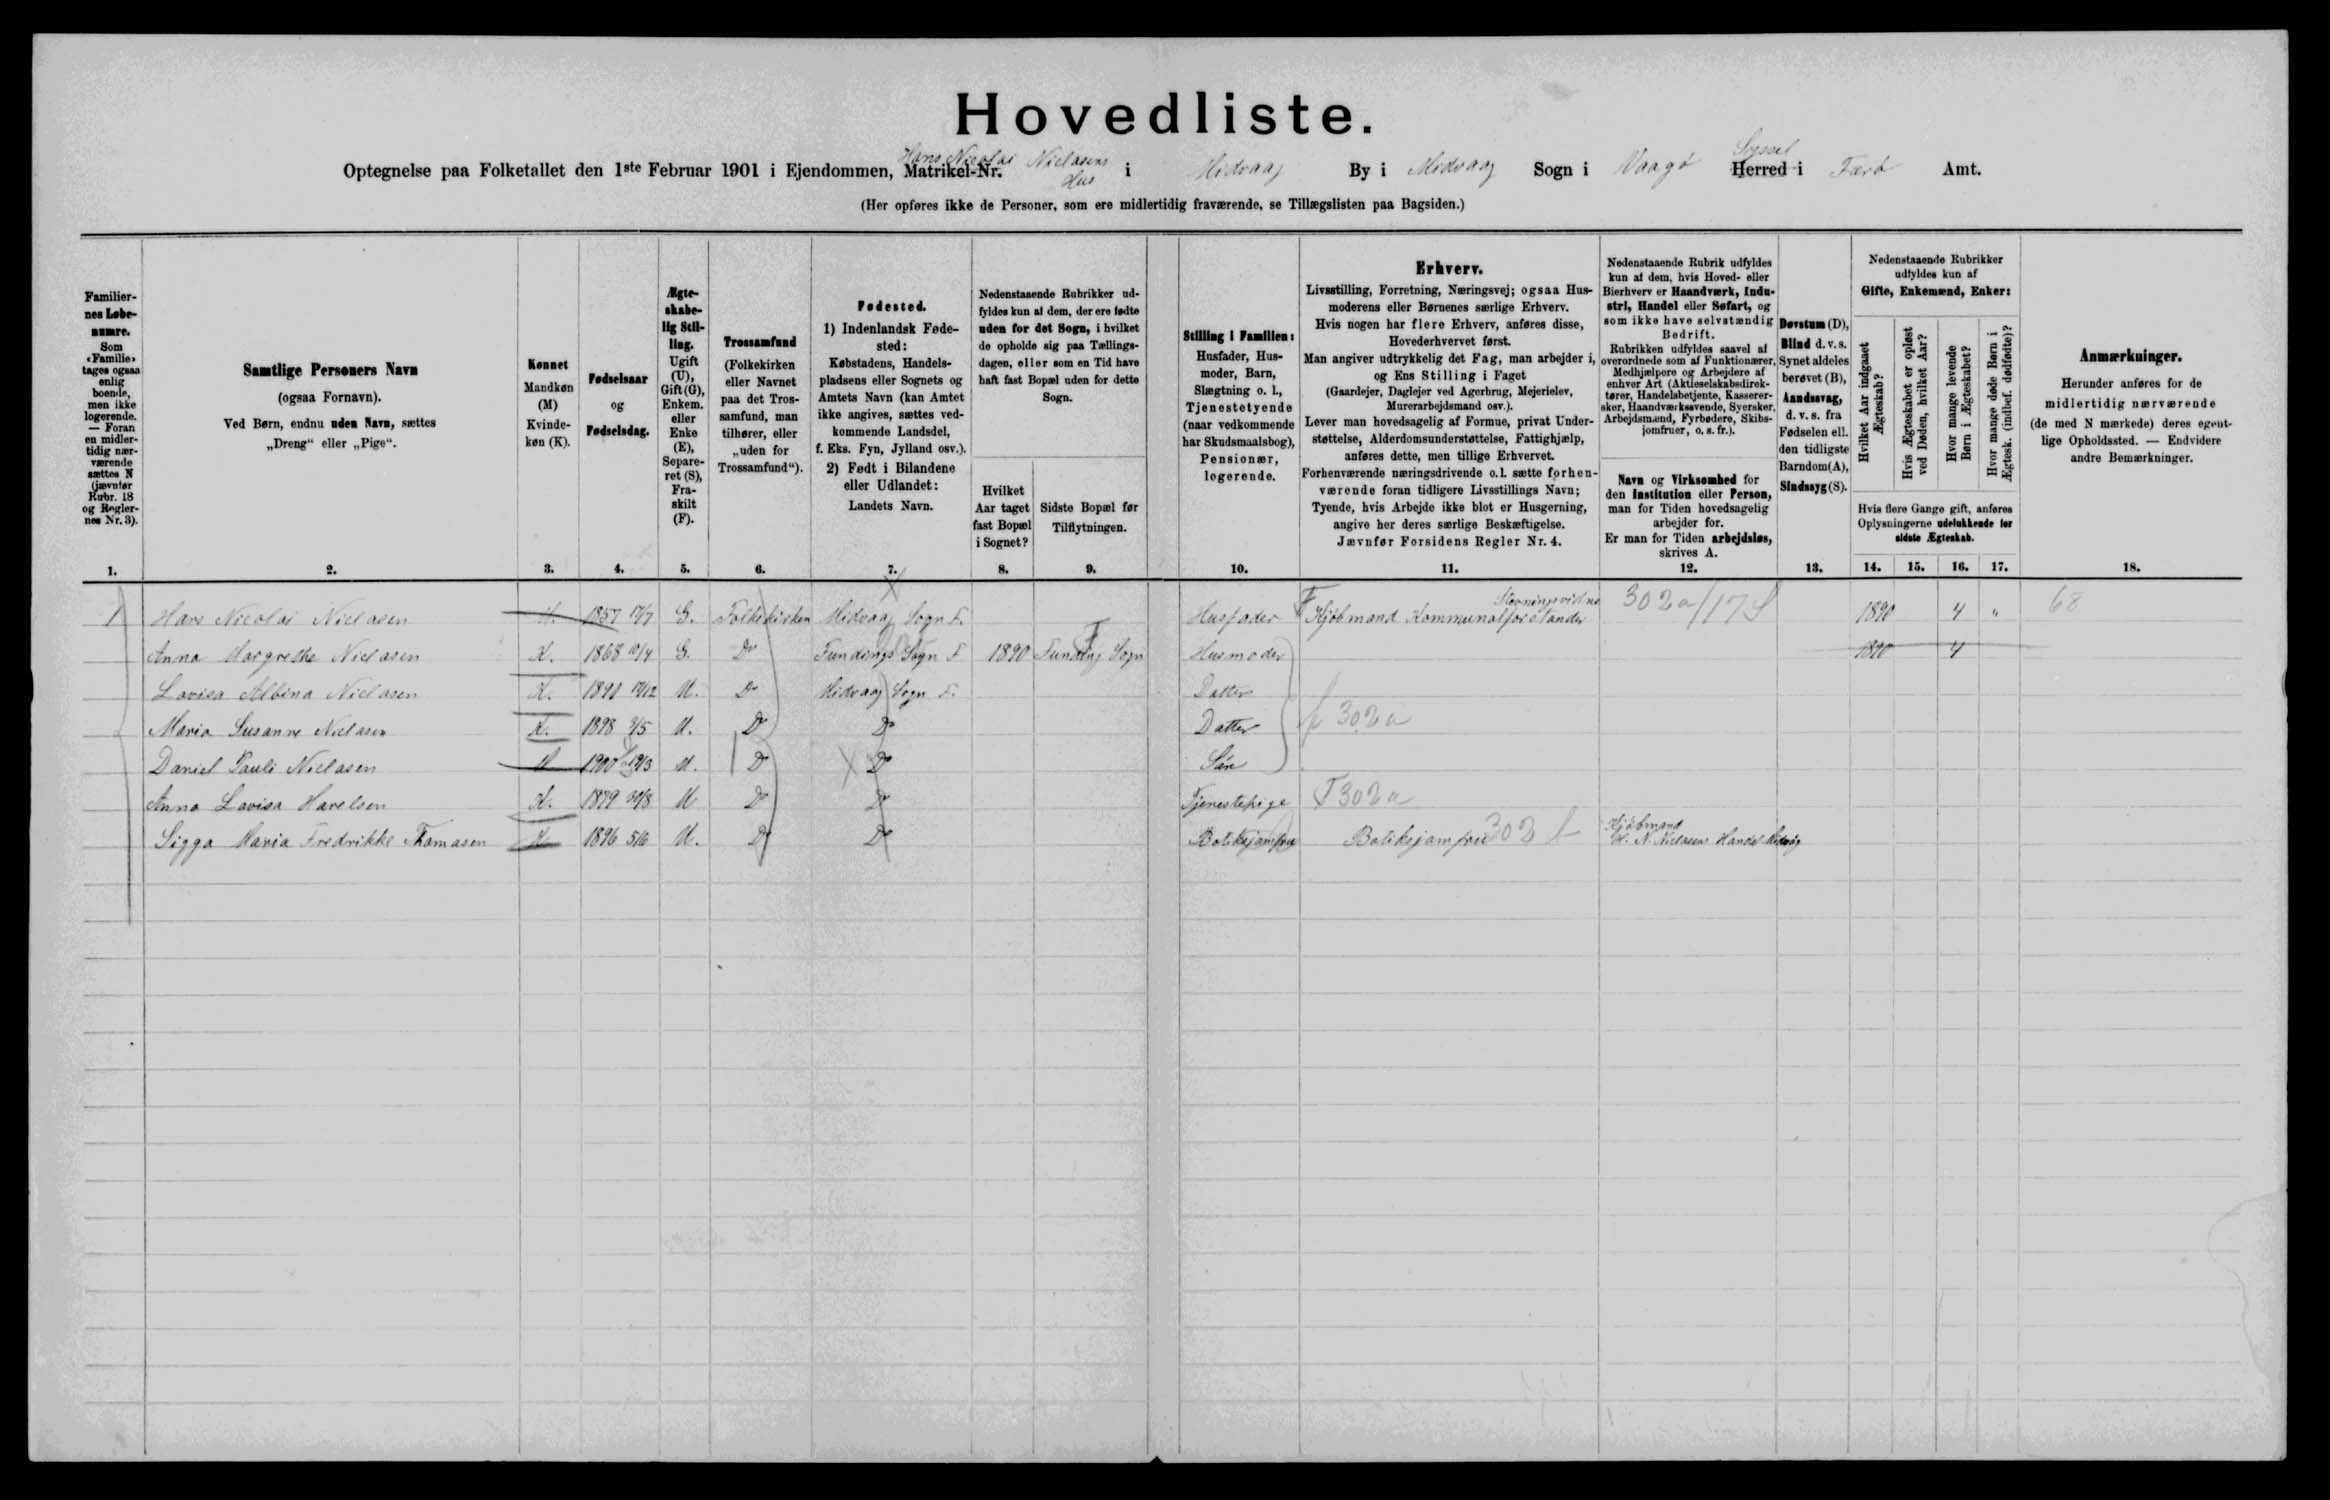 Hovedliste.
Optegnelse paa Folketallet den 1ste Februar 1901 i Ejendommen, Matrikel-Nr. Hans Nicolai Niclasens Hus i Midvaag By i Midvaag Sogn i Vaagø Syssel Herred i Færø Amt.
(Her opføres ikke de Personer, som ere midlertidig fraværende, se Tillægslisten paa Bagsiden.)
Familier-
nes Løbe-
numre.
Som
«Familie»
tages ogsaa
enlig
boende,
men ikke
logerende.
— Foran
en midler-
tidig nær-
værende
sættes N
(jævnfør
Rubr. 18
og Regler-
nes Nr. 3).
1.
Samtlige Personers Navn
(ogsaa Fornavn).
Ved Børn, endnu uden Navn, sættes
„Dreng“ eller „Pige“.
2.
Kønnet
Mandkøn
(M)
Kvinde-
køn (K).
3.
Fødselsaar
og
Fødselsdag.
4.
Ægte-
skabe-
lig Stil-
ling.
Ugift
(U),
Gift (G),
Enkem.
eller
Enke
(E),
Separe-
ret (S),
Fra-
skilt
(F).
5.
Trossamfund
(Folkekirken
eller Navnet
paa det Tros-
samfund, man
tilhører, eller
„uden for
Trossamfund“).
6.
Fødested.
1) Indenlandsk Føde-
sted:
Købstadens, Handels-
pladsens eller Sognets og
Amtets Navn (kan Amtet
ikke angives, sættes ved-
kommende Landsdel,
f. Eks. Fyn, Jylland osv.).
2) Født i Bilandene
eller Udlandet:
Landets Navn.
7.
Nedenstaaende Rubrikker ud-
fyldes kun af dem, der ere fødte
uden for det Sogn, i hvilket
de opholde sig paa Tællings-
dagen, eller som en Tid have
haft fast Bopæl uden for dette
Sogn.
Hvilket
Aar taget
fast Bopæl
i Sognet?
8.
Sidste Bopæl før
Tilflytningen.
9.
Stilling i Familien:
Husfader, Hus-
moder, Barn,
Slægtning o. l.,
Tjenestetyende
(naar vedkommende
har Skudsmaalsbog),
Pensionær,
logerende.
10.
Erhverv.
Livsstilling, Forretning, Næringsvej; ogsaa Hus-
moderens eller Børnenes særlige Erhverv.
Hvis nogen har flere Erhverv, anføres disse,
Hovederhvervet først.
Man angiver udtrykkelig det Fag, man arbejder i,
og Ens Stilling i Faget
(Gaardejer, Daglejer ved Agerbrug, Mejerielev,
Murerarbejdsmand osv.).
Lever man hovedsagelig af Formue, privat Under-
støttelse, Alderdomsunderstøttelse, Fattighjælp,
anføres dette, men tillige Erhvervet.
Forhenværende næringsdrivende o.l. sætte forhen-
værende foran tidligere Livsstillings Navn;
Tyende, hvis Arbejde ikke blot er Husgerning,
angive her deres særlige Beskæftigelse.
Jævnfør Forsidens Regler Nr. 4.
11.
Nedenstaaende Rubrik udfyldes
kun af dem, hvis Hoved- eller
Bierhverv er Haandværk, Indu-
stri, Handel eller Søfart, og
som ikke have selvstændig
Bedrift.
Rubrikken udfyldes saavel af
overordnede som af Funktionærer,
Medhjælpere og Arbejdere af
enhver Art (Aktieselskabsdirek-
tører, Handelsbetjente, Kasserer-
sker, Haandværkssvende, Syersker,
Arbejdsmænd, Fyrbødere, Skibs-
jomfruer, o. s. fr.).
Navn og Virksomhed for
den Institution eller Person,
man for Tiden hovedsagelig
arbejder for.
Er man for Tiden arbejdsløs,
skrives A.
12.
Døvstum (D),
Blind d. v. s.
Synet aldeles
berøvet (B),
Aandssvag,
d. v. s. fra
Fødselen ell.
den tidligste
Barndom (A),
Sindssyg (S).
13.
Nedenstaaende Rubrikker
udfyldes kun af
Gifte, Enkemænd, Enker:
Hvilket Aar indgaaet
Ægteskab?
Hvis Ægteskabet er opløst
ved Døden, hvilket Aar?
Hvor mange levende
Børn i Ægteskabet?
Hvor mange døde Børn i
Ægtesk. (indbef. dødfødte)?
Hvis flere Gange gift, anføres
Oplysningerne udelukkende for
sidste Ægteskab.
14. 15. 16. 17.
Anmærkninger.
Herunder anføres for de
midlertidig nærværende
(de med N mærkede) deres egent-
lige Opholdssted. — Endvidere
andre Bemærkninger.
18.
1 Hans Nicolai Niclasen M. 1857 17/7 G. Folkekirken Midvaag Sogn F. Husfader Kjøbmand Kommunalforstander 302a/17 1890 4 „ 68
Anna Margrethe Niclasen K. 1868 10/4 G. Do Fundings Sogn F 1890 Funding Sogn Husmoder 1890 4
Lovisa Albina Niclasen K. 1890 17/12 U. Do Midvaag Sogn F. Datter
Maria Susanne Niclasen K. 1898 3/5 U. Do Do Datter 302a
Daniel Pauli Niclasen M 1900 19/3 U. Do Do Søn
Anna Lovisa Harelsen K. 1879 30/8 U Do Do Tjenestepige 302a
Sigga Maria Fredrikke Thomasen K. 1896 5/6 U. Do Do Botiksjomfru Botiksjomfru 302 Kjøbmand
H. N. Niclasens Handel Midvaag